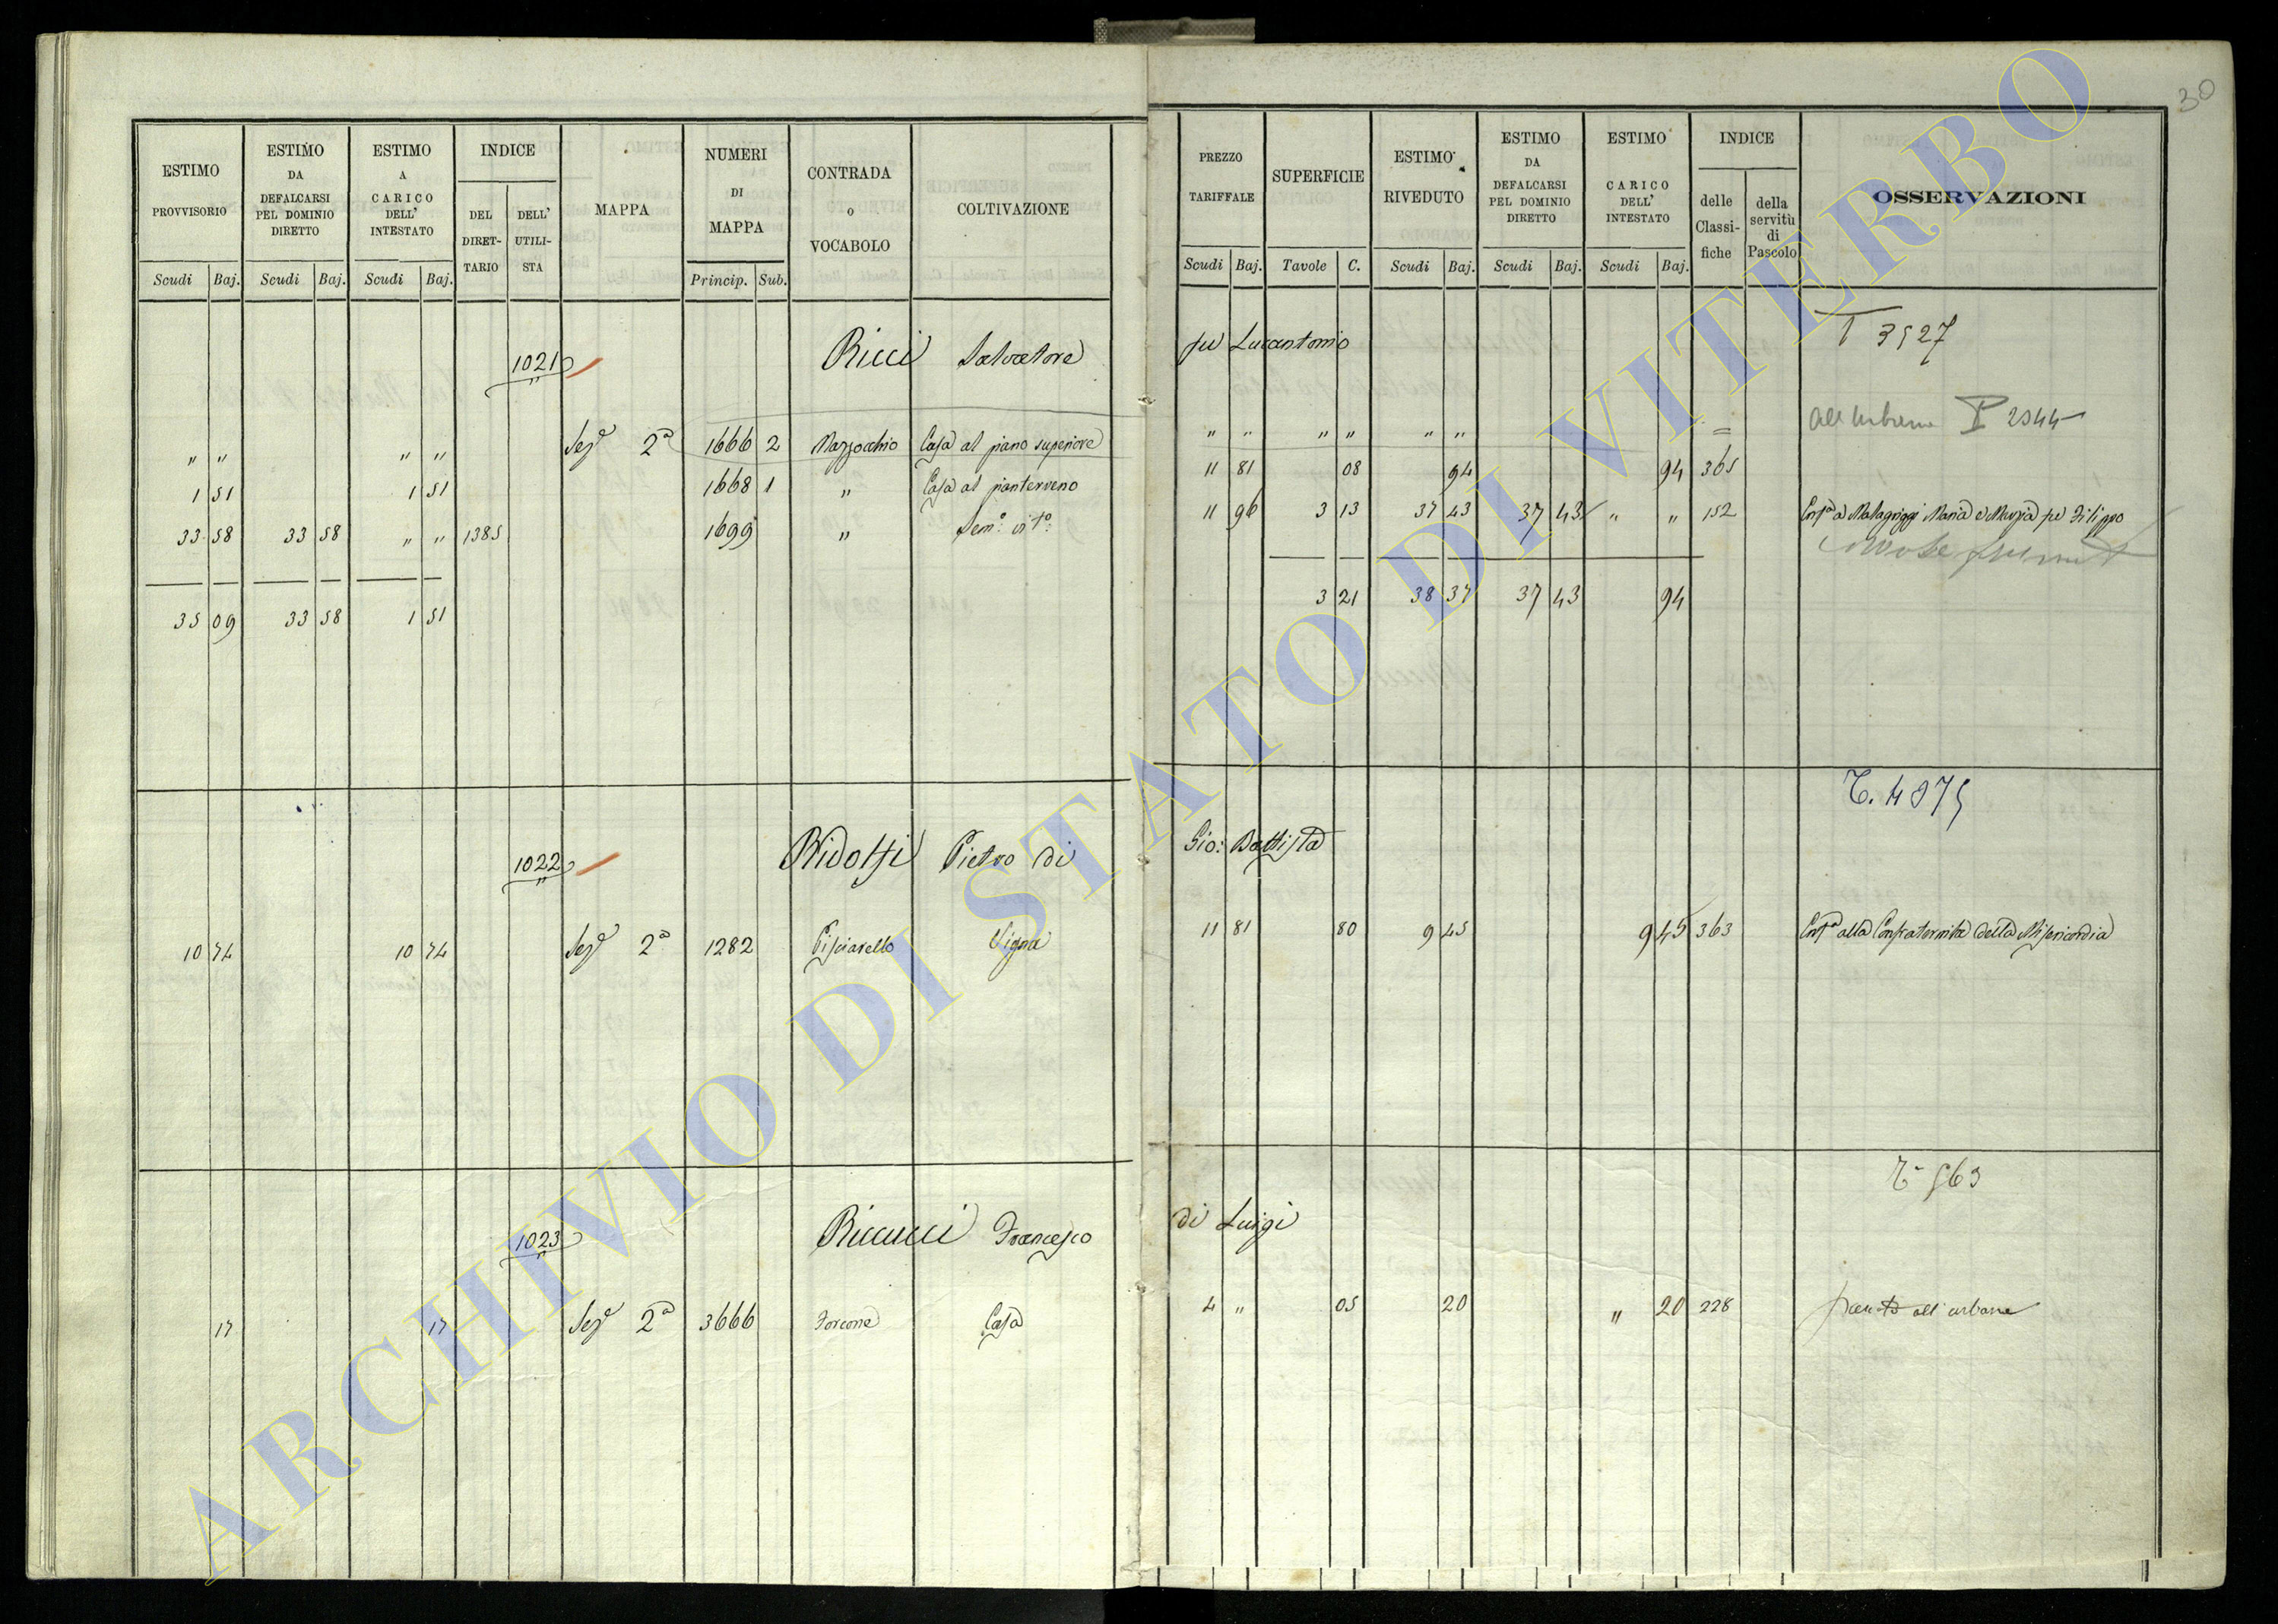 30
ESTIMO PROVVISORIO
ESTIMO DA DEFALCARSI PEL DOMINIO DIRETTO
ESTIMO A CARICO DELL' INTESTATO
INDICE
DEL DIRET-TARIO
DELL' UTILI-STA
MAPPA
NUMERI DI MAPPA
CONTRADA o VOCABOLO
COLTIVAZIONE
Scudi Baj. Scudi Baj. Scudi Baj. Princip. Sub.
PREZZO TARIFFALE
SUPERFICIE
ESTIMO RIVEDUTO
ESTIMO DA DEFALCARSI PEL DOMINIO DIRETTO
ESTIMO CARICO DELL' INTESTATO
INDICE
delle Classi-fiche
della servitù di Pascolo
OSSERVAZIONI
Scudi Baj. Tavole C. Scudi Baj. Scudi Baj. Scudi Baj.
1021 Ricci Salvatore fu Lucantonio T 3527
" " " " Sez.e 2a 1666 2 Mazzocchio Casa al piano superiore " " " " " " = all'urbano 2544
1 51 1 51 1668 1 " Casa al pianterreno 11 81 08 94 94 365
33 58 33 58 " " 1385 1699 " Sem.o vit.o 11 96 3 13 37 43 37 43 " " 152 Maria fu Filippo
35 09 33 58 1 51 3 21 38 37 37 43 94
T. 4875
1022 Ridolfi Pietro di Gio: Battista
10 74 10 74 Sez.e 2a 1282 Pisciarello Vigna 11 81 80 9 45 9 45 363 alla Confraternita della Misericordia
T 563
1023 Ricucci Francesco di Luigi
17 17 Sez.e 2a 3666 Forcone Casa 4 " 05 20 " 20 228 all'urbano
ARCHIVIO DI STATO DI VITERBO